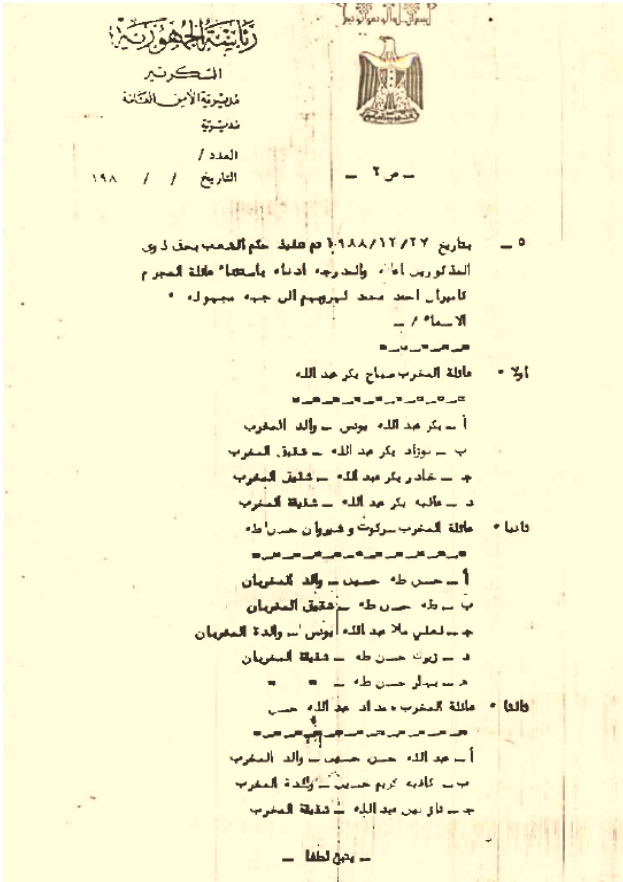 بسم الله الرحمن الرحيم
رئاسة الجمهورية
السكرتير
مديرية الأمن العامة
مديرية
العدد /
التاريخ / / ١٩٨
ـ ص ٢ ـ
٥ ـ بتاريخ ١٩٨٨/١٢/٢٧ تم تنفيذ حكم الشعب بحق ذوى
المذكورين اعلاه والمدرجه ادناه باستثناء عائلة المجرم
كامران احمد محمد لهروبهم الى جهه مجهوله *
الاسماء / ـ
اولا * عائلة المخرب صباح بكر عبد الله
أ ـ بكر عبد الله يونس ـ والد المخرب
ب ـ نوزاد بكر عبد الله ـ شقيق المخرب
جـ ـ خادر بكر عبد الله ـ شقيق المخرب
د ـ عائبه بكر عبد الله ـ شقيقة المخرب
ثانيا * عائلة المخرب سركوت و شيروان حسن طه
أ ـ حسن طه حسين ـ والد المخربان
ب ـ طه حسن طه ـ شقيق المخربان
جـ ـ ملا عبد الله يونس ـ والدة المخربان
د ـ حسن طه ـ شقيقة المخربان
هـ ـ بهار حسن طه ـ " "
ثالثا * عائلة المخرب عبد الله حسن
أ ـ عبد الله حسن حسين ـ والد المخرب
ب ـ كافيه كريم حسين ـ والدة المخرب
جـ ـ عبد الله ـ شقيقة المخرب
ـ يتبع لطفا ـ